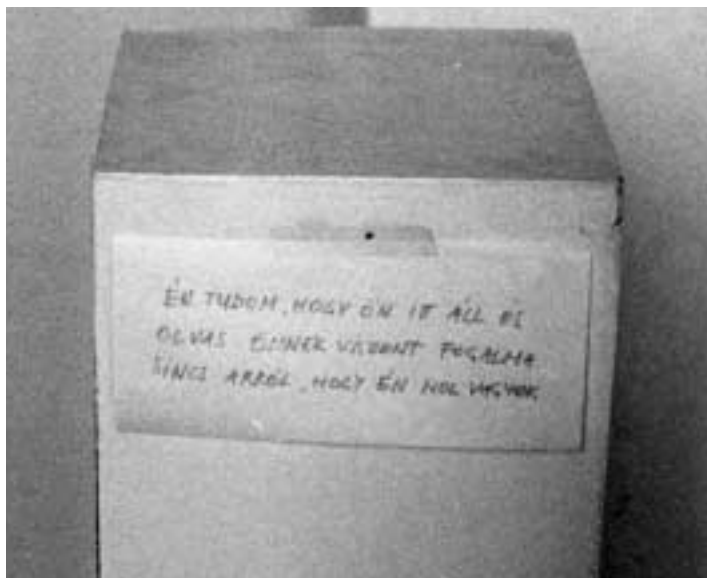 ÉN TUDOM, HOGY ÖN IT ÁLL ÉS
OLVAS ÖNNEK VISZONT FOGALMA
SINCS ARRÓL, HOGY ÉN HOL VAGYOK